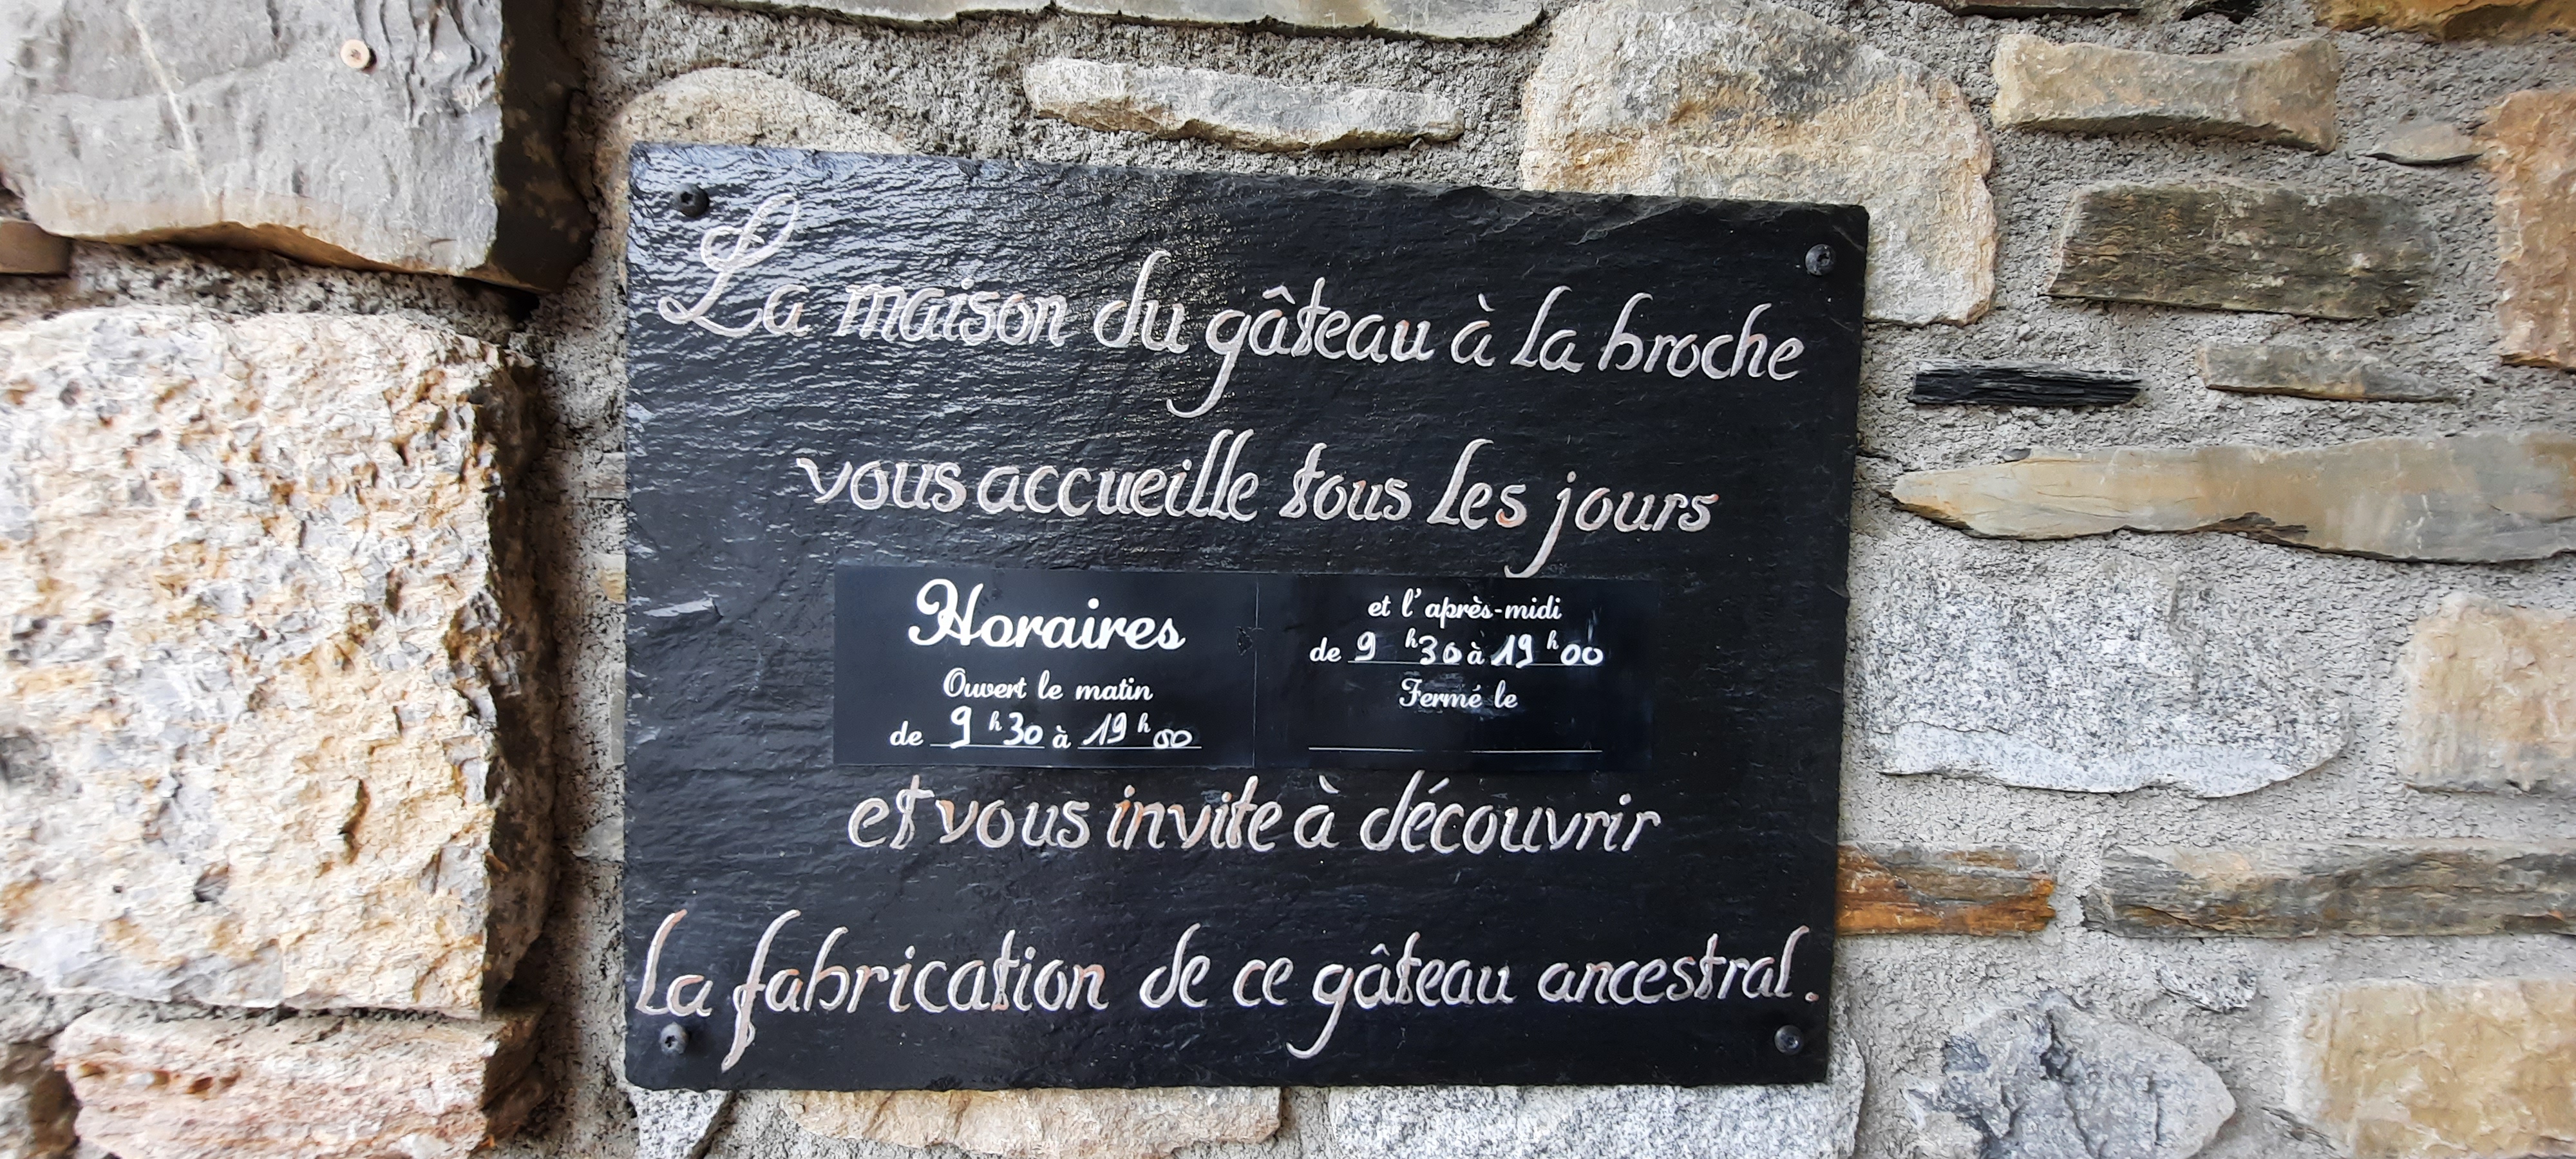 La maison du gâteau à la broche
vous accueille tous les jours
Horaires
Ouvert le matin
de 9 h 30 à 19 h 00
et l'après-midi
de 9 h 30 à 19 h 00
Fermé le
et vous invite à découvrir
la fabrication de ce gâteau ancestral.